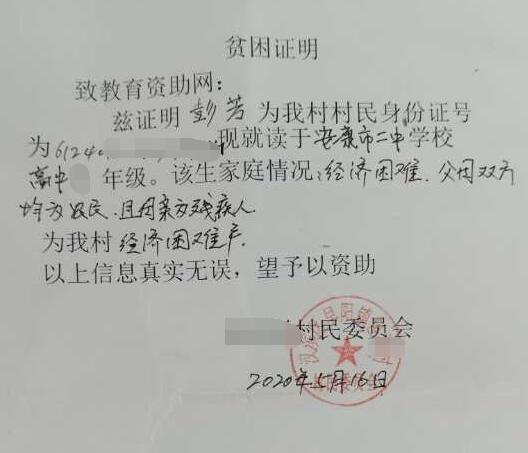 贫困证明
致教育资助网：
兹证明 彭芳 为我村村民身份证号
为 6124 现就读于 安康市二中 学校
高中 年级。该生家庭情况：经济困难、父母双方
均为农民、且母亲为残疾人
为我村 经济困难户
以上信息真实无误，望予以资助
村民委员会
2020年5月16日